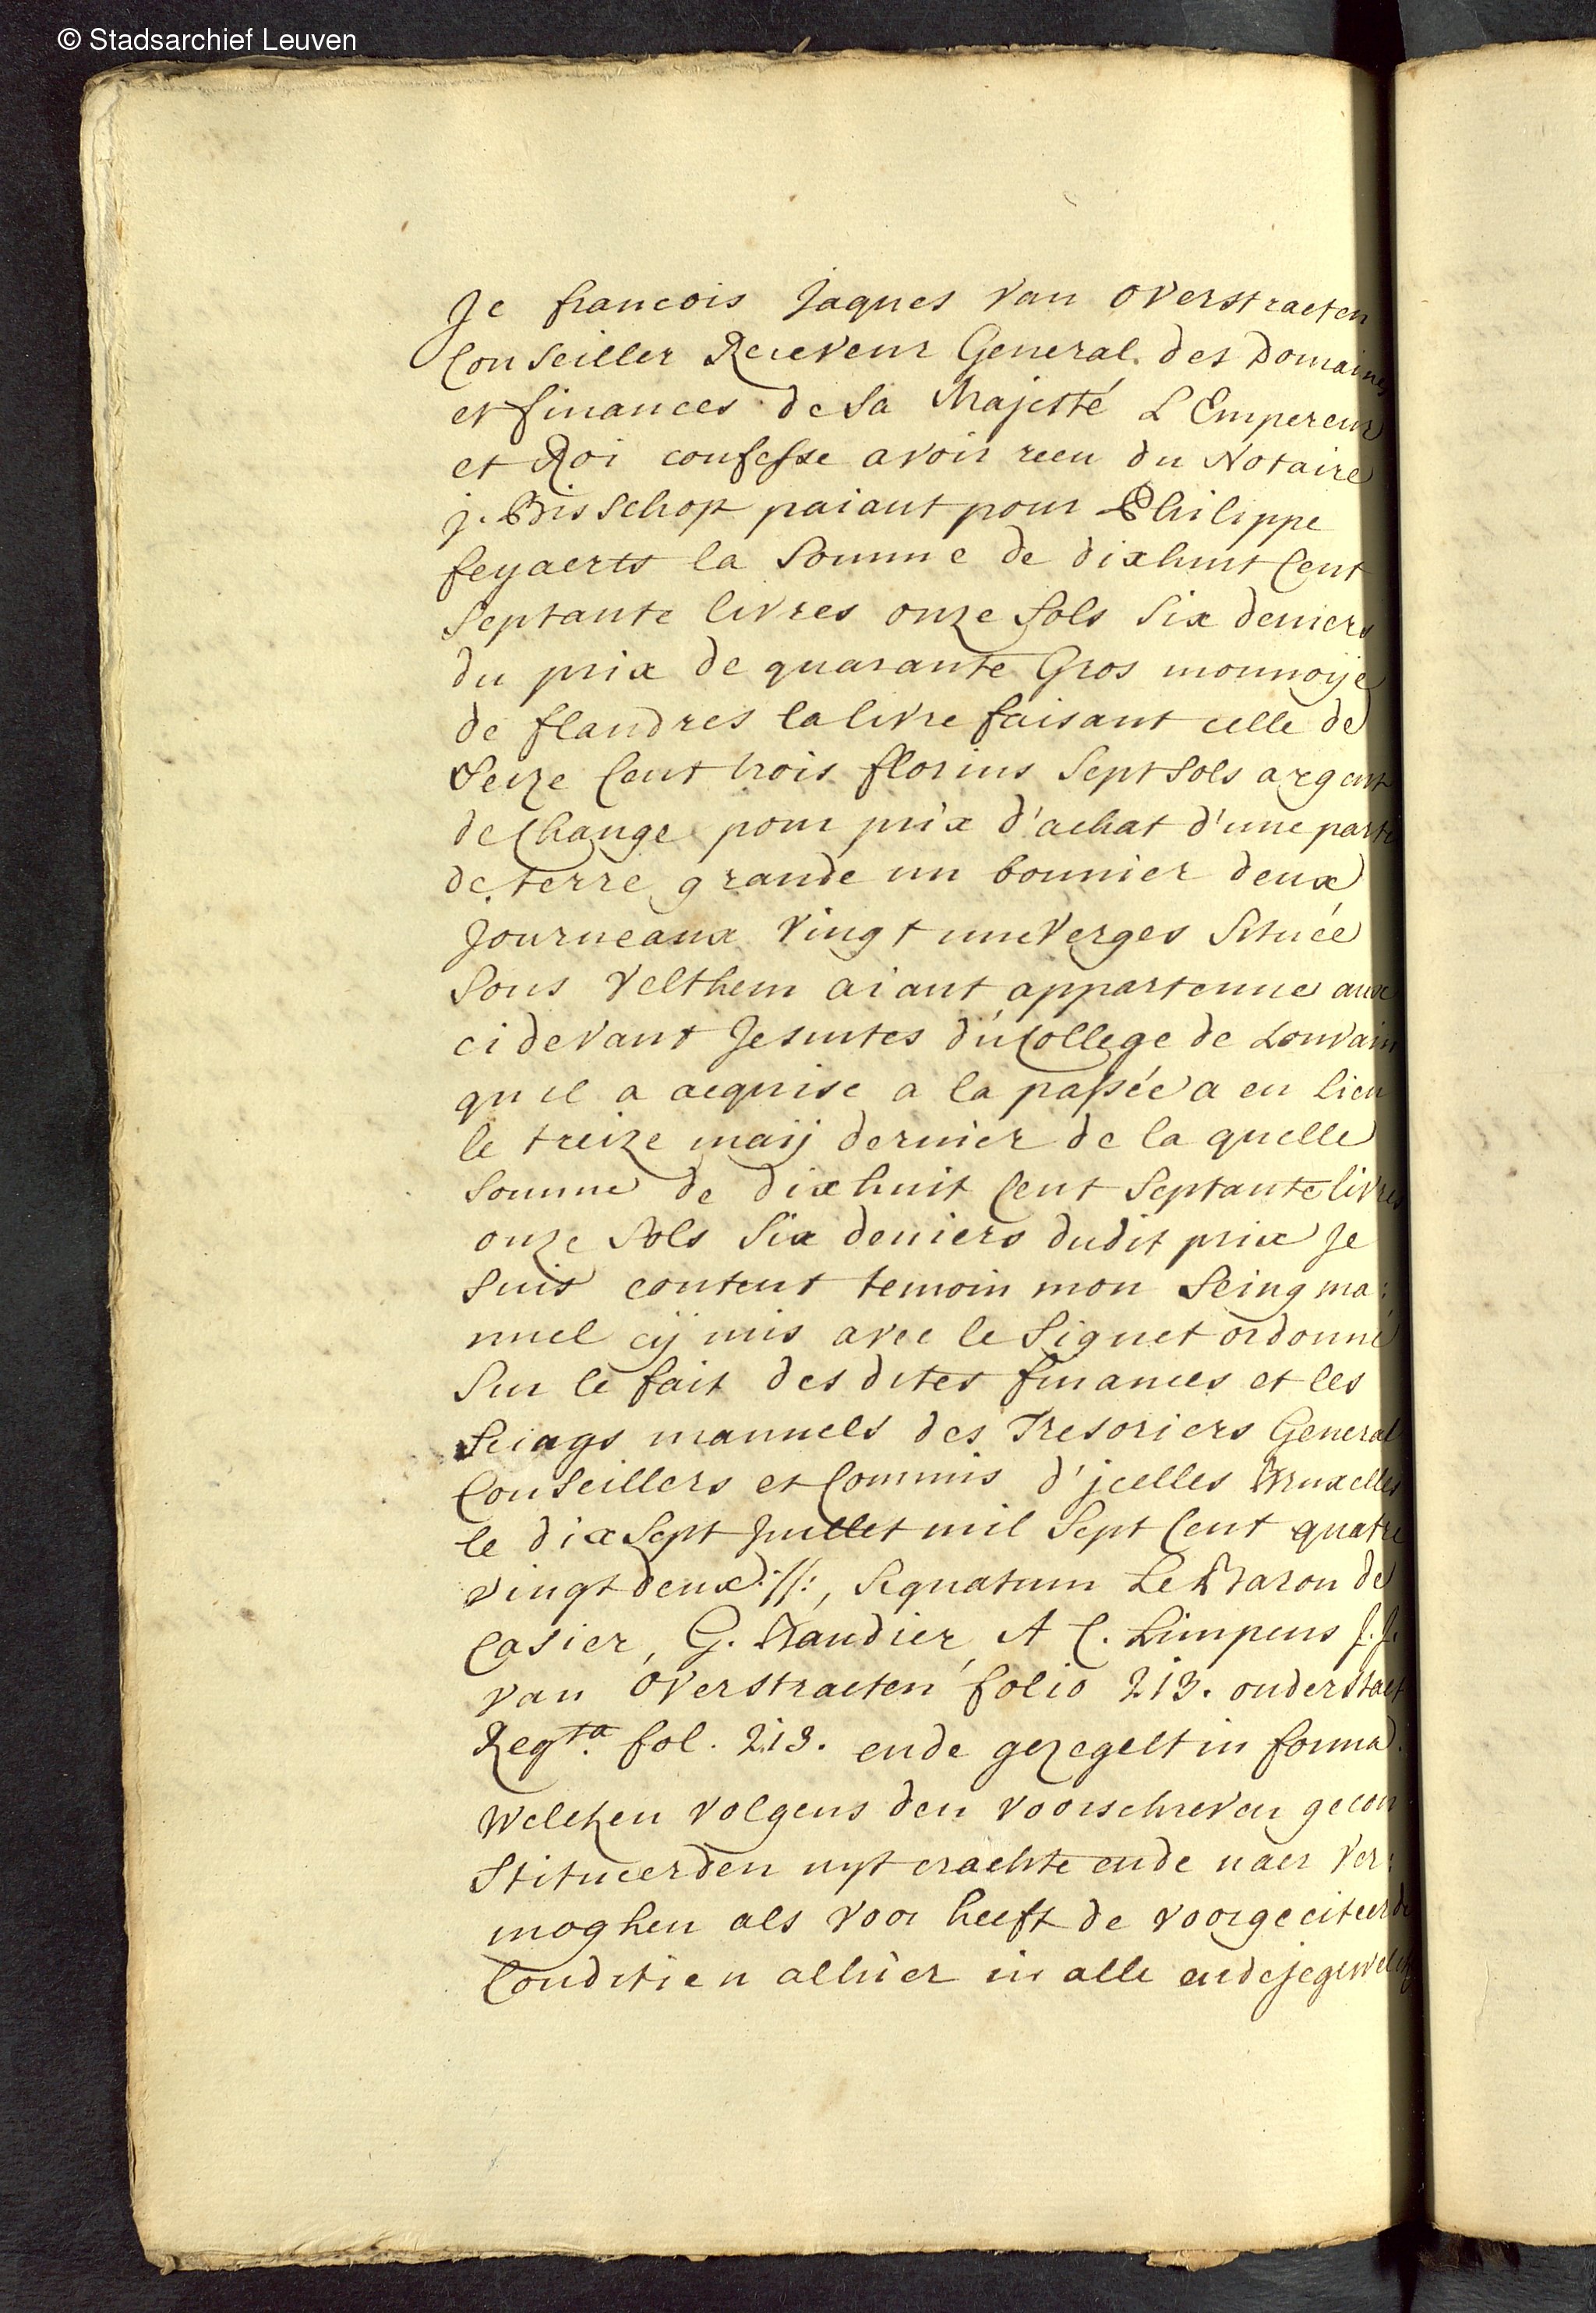 © Stadsarchief Leuven
Je francois Jaques Van Overstraeten
Conseiller Receveur General des Domaines
et finances de Sa Majesté L'Empereur
et Roi confesse avoir recu du Notaire
j. Bisschop paiant pour Philippe
feyaerts la Somme de dixhuit Cent
Septante livres onze Sols Six deniers
du prix de quarante Gros monnoije
de flandres la livre faisant celle de
Seize Cent trois florins Sept Sols argent
de Change pour prix d'achat d'une partie
de terre grande un bonnier deux
Journeaux Vingt une Verges Située
Sous Velthem aiant appartenue aux
ci devant Jesuites du College de Louvain
qu il a acquise a la passée a eu lieu
le treize maij dernier de la quelle
Somme de dixhuit Cent Septante livres
onze Sols Six deniers dudit prix Je
Suis content temoin mon Seing ma:
nuel cij mis avec le Signet ordonné
Sur le fait des dites finances et les
Seings manuels des Tresoriers General
Conseillers et Commis d'jcelles Bruxelles
le dix Sept Juillet mil Sept Cent quatre
vingt deux ://:, Signatum Le Baron de
Casier, G. Baudier, A C. Limpens f. J.
van Overstraeten folio 213. onderstaet
Regta. fol. 213. ende gezegelt in forma.
Welcken volgens den voorschreven gecon
Stitueerden uyt crachte ende naer Ver:
moghen als voor heeft de voorgeciteerde
Conditien alhier in alle ende jegewelcke